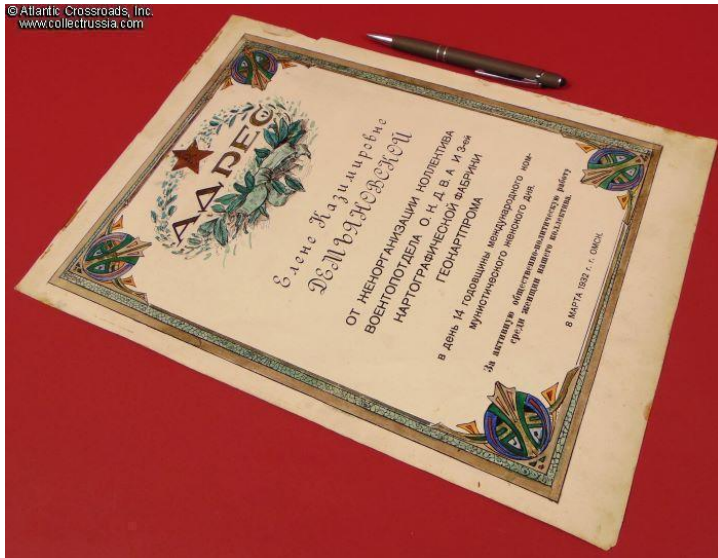 © Atlantic Crossroads, Inc.
www.collectrussia.com
АДРЕС
Елене Казимировне
ДЕМЬЯНОВСКОЙ
ОТ ЖЕНОРГАНИЗАЦИИ КОЛЛЕКТИВА
ВОЕНТОПОТДЕЛА О. К. Д. В. А И 3-ей
КАРТОГРАФИЧЕСКОЙ ФАБРИКИ
ГЕОКАРТПРОМА
в день 14 годовщины международного ком-
мунистического женского дня.
За активную общественно-политическую работу
среди женщин нашего коллектива.
8 МАРТА 1932 г. г. ОМСК.